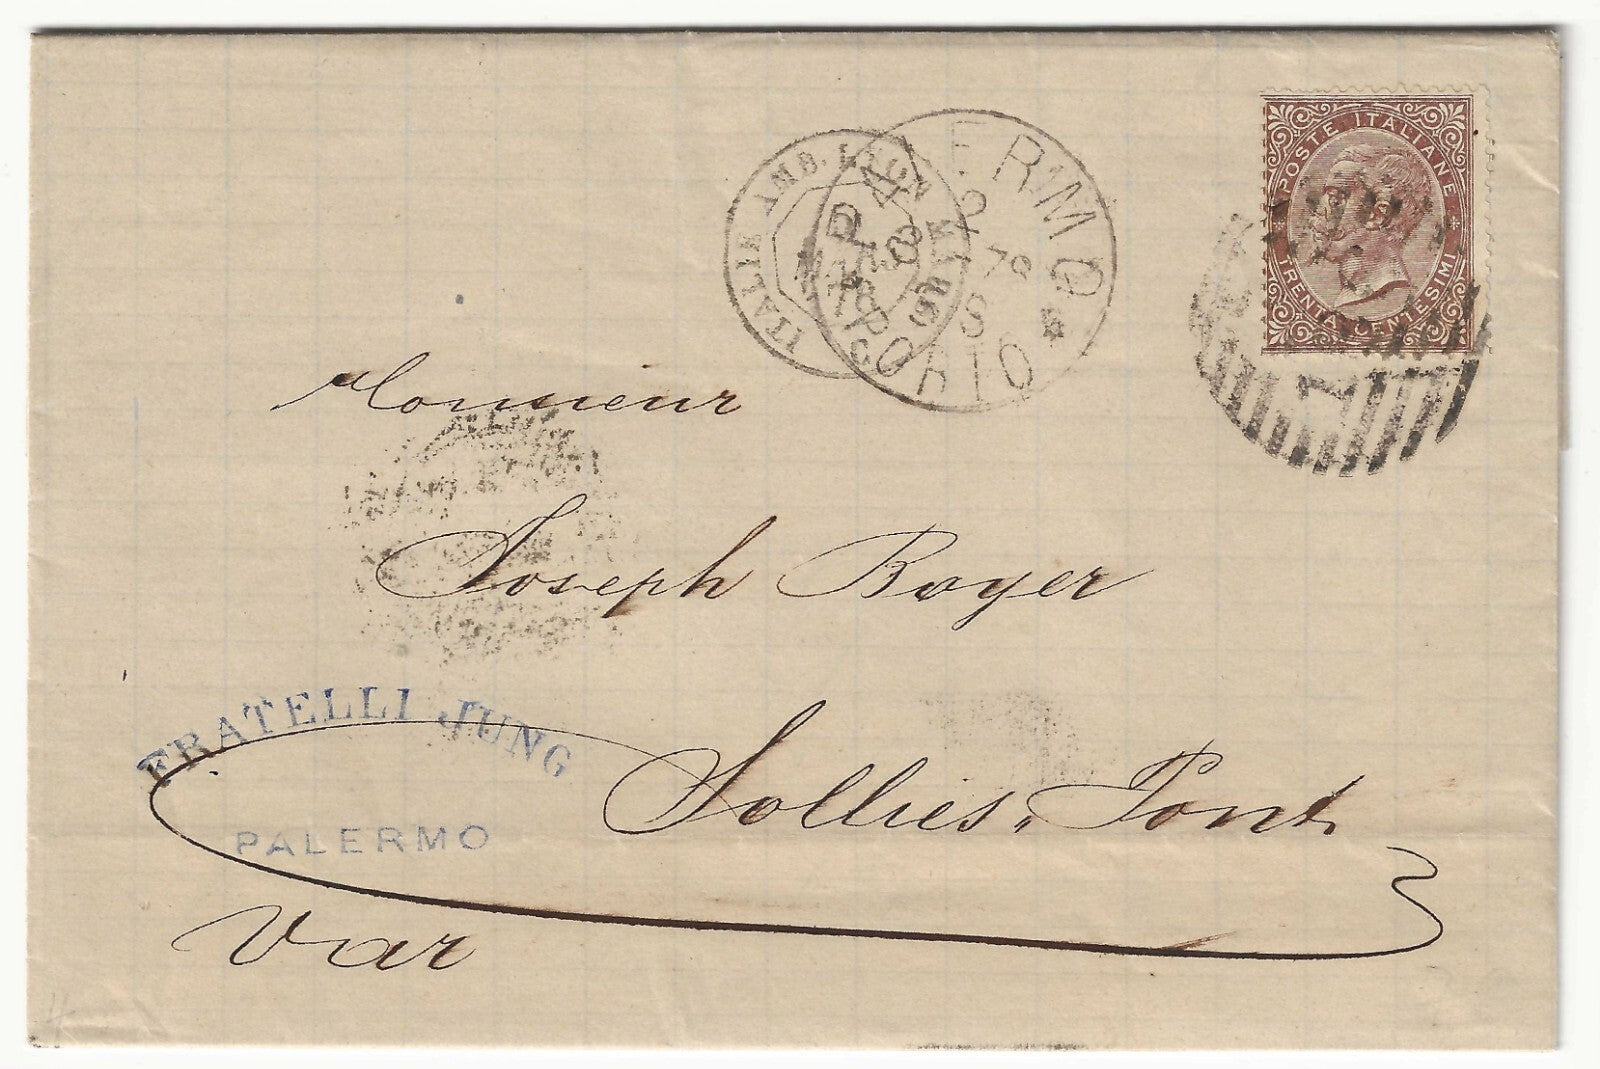 POSTE ITALIANE
TRENTA CENTESIMI
ITALIE AMB. LYON MARS
PALERMO
PORTO
78
Monsieur
Joseph Boyer
FRATELLI JUNG
Sollies, Pont
PALERMO
Var